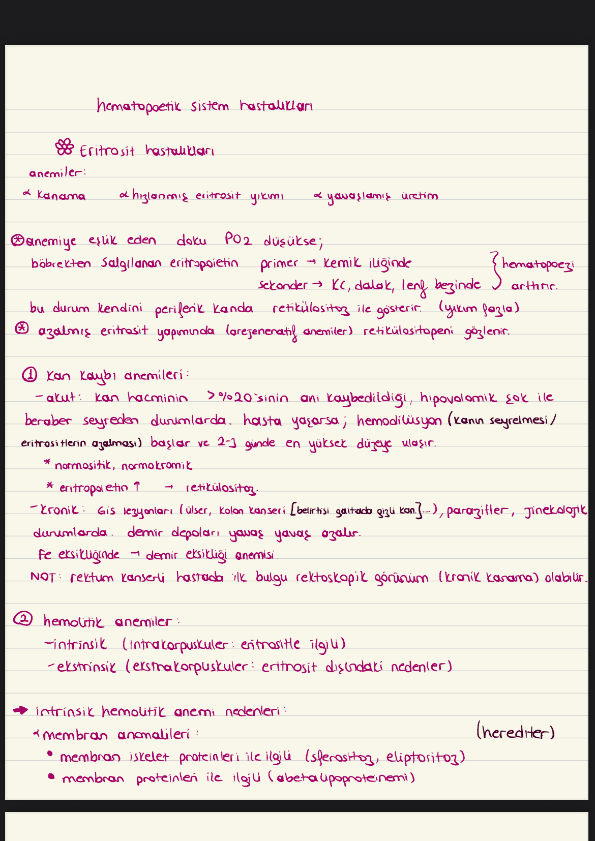 hematopoetik sistem hastalıkları
Eritrosit hastalıkları
anemiler:
∝ kanama ∝ hızlanmış eritrosit yıkımı ∝ yavaşlamış üretim
* anemiye eşlik eden doku PO2 düşükse;
böbrekten salgılanan eritropoietin primer → kemik iliğinde } hematopoezi
sekonder → KC, dalak, lenf bezinde } arttırır.
bu durum kendini periferik kanda retikülositoz ile gösterir. (yıkım fazla)
* azalmış eritrosit yapımında (arejeneratif anemiler) retikülositopeni gözlenir.
① kan kaybı anemileri:
- akut: kan hacminin >%20'sinin ani kaybedildiği, hipovolomik şok ile
beraber seyreden durumlarda. hasta yaşarsa; hemodilüsyon (kanın seyrelmesi/
eritrositlerin azalması) başlar ve 2-3 günde en yüksek düzeye ulaşır.
* normositik, normokromik
* eritropoietin ↑ → retikülositoz.
- kronik: GİS lezyonları (ülser, kolon kanseri [belirtisi gaitada gizli kan]...), parazitler, jinekolojik
durumlarda. demir depoları yavaş yavaş azalır.
Fe eksikliğinde → demir eksikliği anemisi
NOT: rektum kanserli hastada ilk bulgu rektoskopik görünüm (kronik kanama) olabilir.
② hemolitik anemiler:
- intrinsik (intrakorpuskuler: eritrositle ilgili)
- ekstrinsik (ekstrakorpuskuler: eritrosit dışındaki nedenler)
➡ intrinsik hemolitik anemi nedenleri:
∝ membran anomalileri: (herediter)
• membran iskelet proteinleri ile ilgili (sferositoz, eliptoritoz)
• membran proteinleri ile ilgili (abetalipoproteinemi)